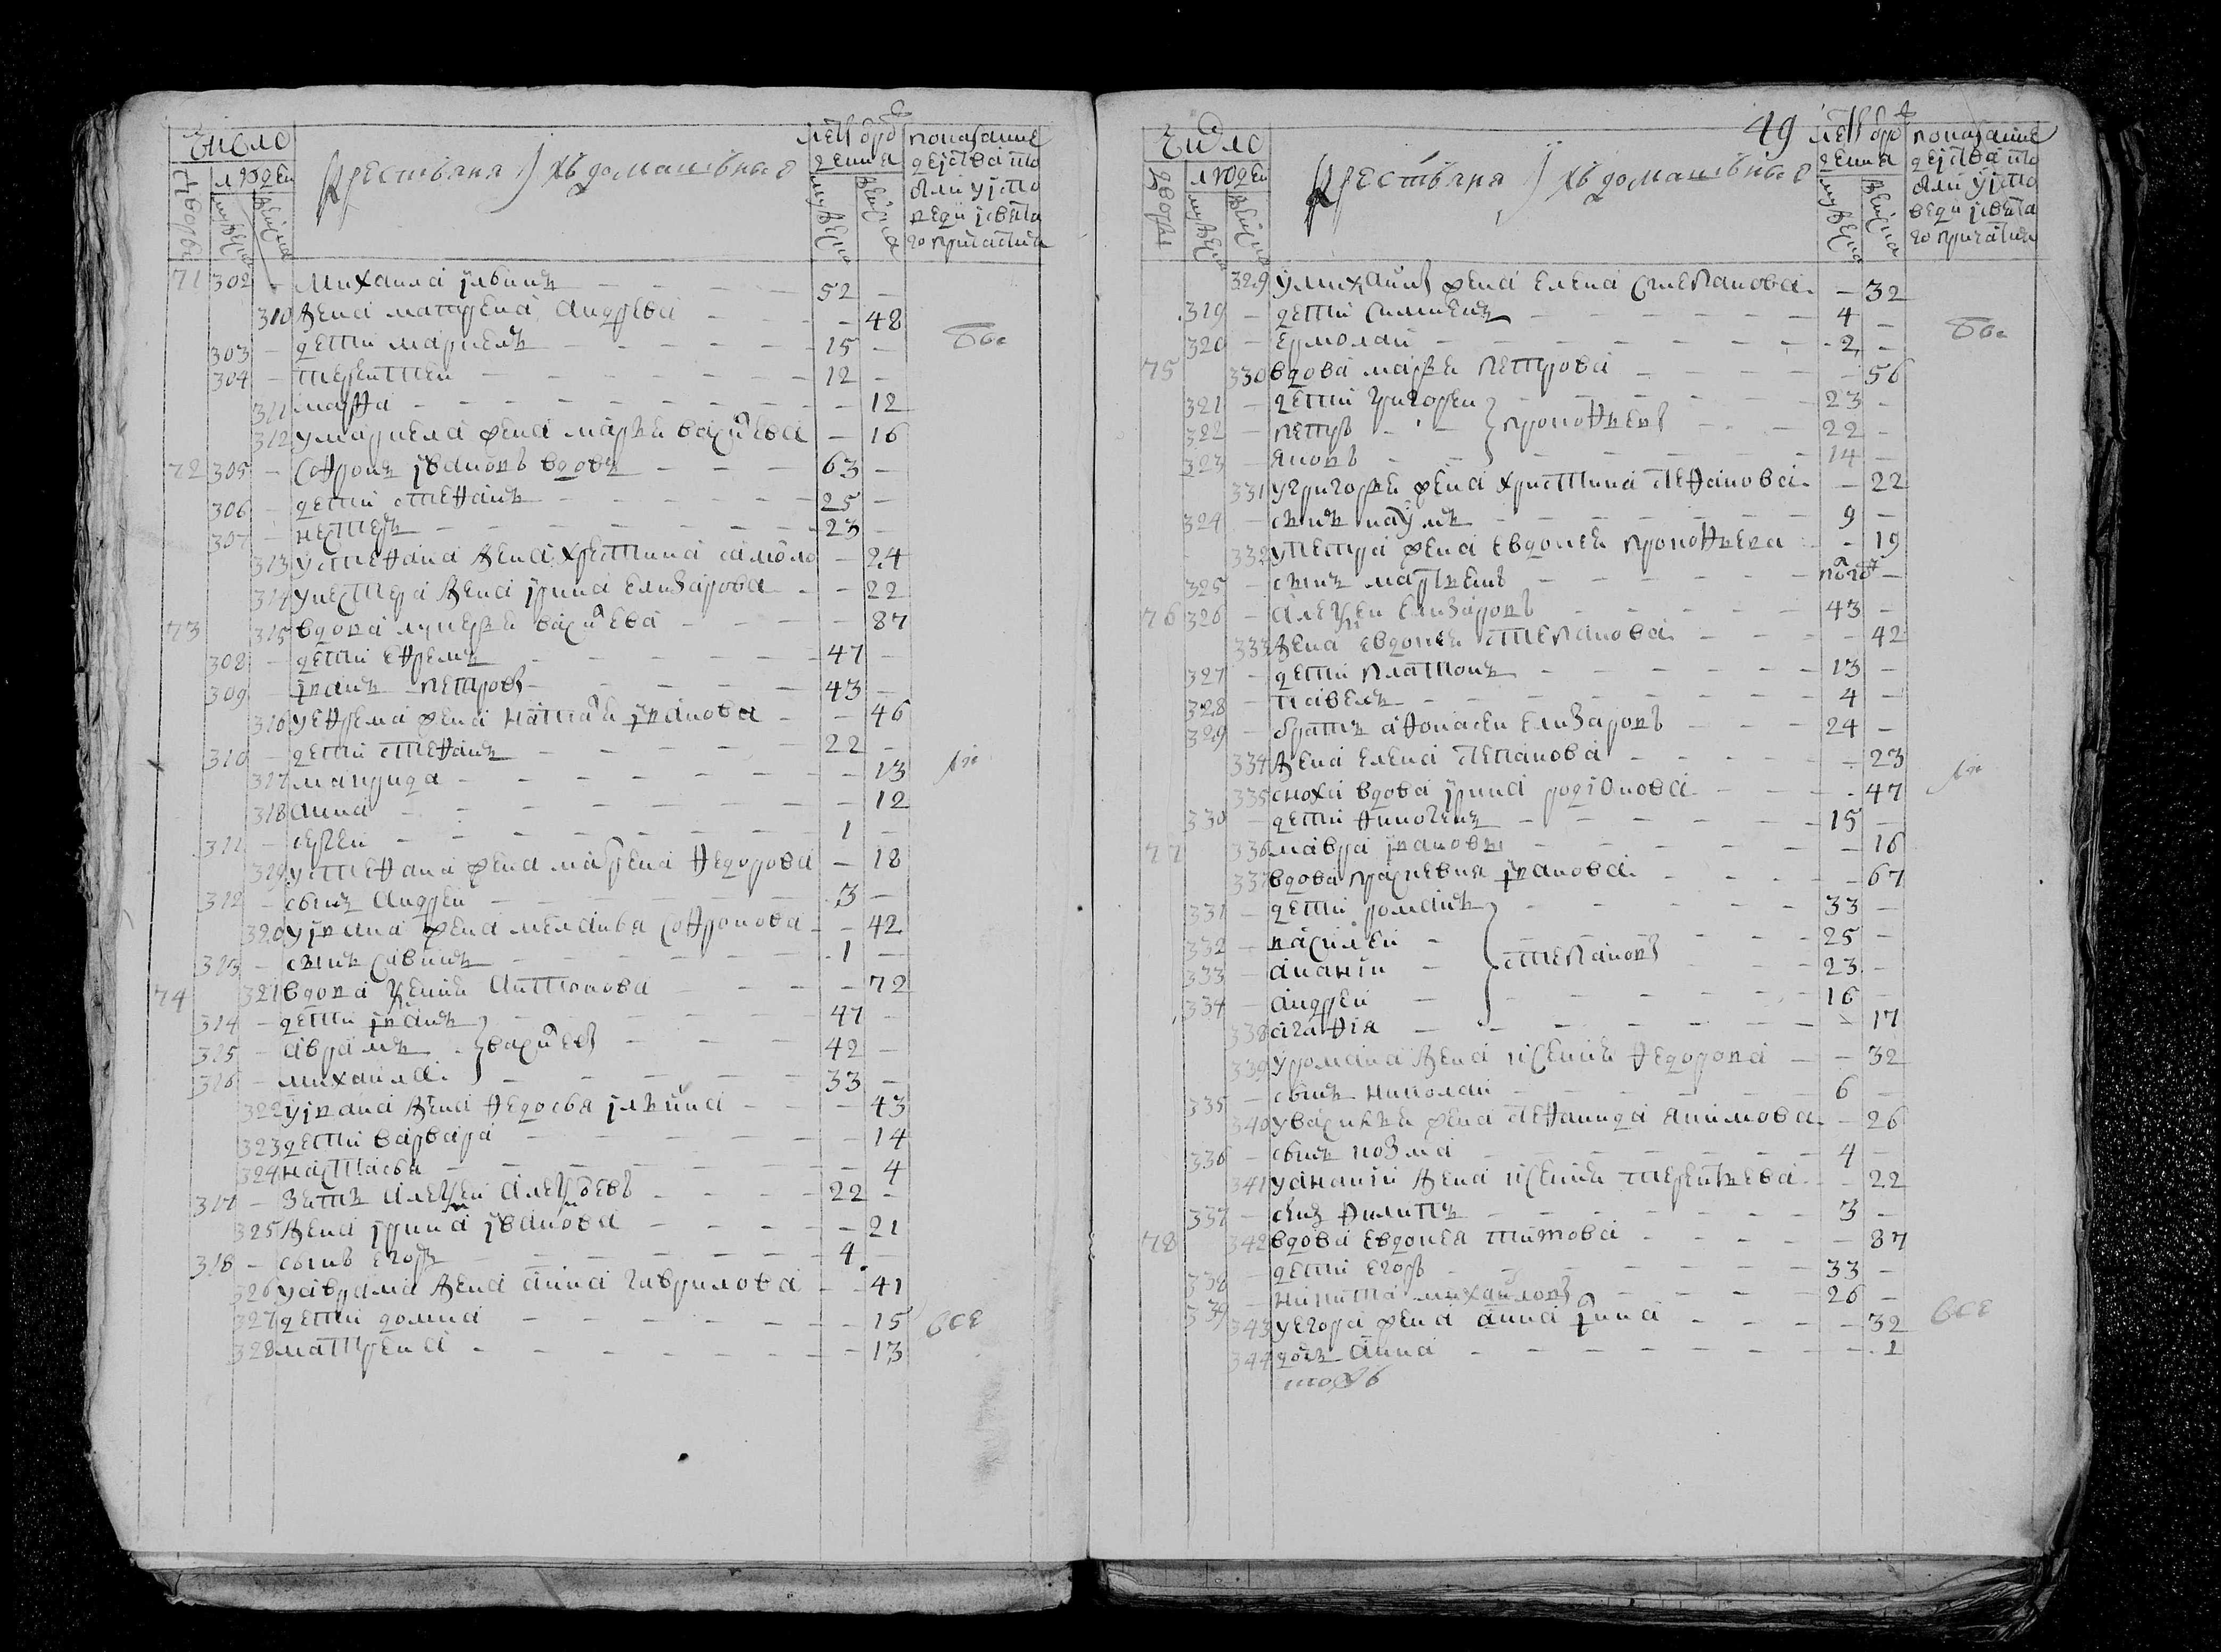 Число
Дворовъ
людей
мужеска
женска
Крестьяня и ихъ домашъные
летъ от рождения
мужеска
женска
показание действа кто были у исповеди и святаго причастия
71 302 - михаила ильинъ - 52 -
310 жена матрена андреева - 48
303 - дети маркелъ - 15 -
304 - терентей - 12 -
311 марфа - 12
312 у маркела жена марья васильева - 16
72 305 - софронъ ивановъ вдовъ - 63 -
306 - дети стефанъ - 25 -
307 - нестеръ - 23 -
313 у стефана жена христина самойло - 24
314 у нестера жена ирина елизарова - 22
73 315 вдова лукерья васильева - 87
308 - дети ефремъ - 47 -
309 - иванъ петровы - 43 -
316 у ефрема жена наталья иванова - 46
310 - дети стефанъ - 22 -
317 манрида - 13
318 анна - 12
311 - сергеи - 1 -
319 у стефана жена матрена федорова - 18
312 - сынъ андреи - 3 -
320 у ивана жена меланья софронова - 42
313 - сынъ савинъ - 1 -
74 321 вдова ксенья антонова - 72
314 - дети иванъ - 47 -
315 - аврамъ васильевы - 42 -
316 - михаила - 33 -
322 у ивана жена федосья ильина - 43
323 дети варвара - 14
324 настасья - 4
317 - зеть алексеи алексеевъ - 22 -
325 жена ирина иванова - 21
318 - сынъ егоръ - 4 -
326 у аврама жена анна гаврилова - 41
327 дети домна - 15
328 матрена - 13
все
49
Число
Дворовъ
людей
мужеска
женска
Крестьяня и ихъ домашъные
летъ от рождения
мужеска
женска
показание действа кто были у исповеди и святаго причастия
329 у михаилы жена елена степанова - 32
319 - дети симионъ - 4 -
320 - ермолаи - 2 -
75 330 вдова марья петрова - 56
321 - дети григореи - 23 -
322 - петръ прокофьевы - 22 -
323 - яковъ - 14 -
331 у григорья жена христина стефанова - 22
324 - сынъ наумъ - 9 -
332 у петра жена евдокея прокофьева - 19
325 - сынъ мартьянъ - полго -
76 326 - алексеи елизаровъ - 43 -
333 жена евдокея степанова - 42
327 - дети платонъ - 13 -
328 - павелъ - 4 -
329 - братъ афонасеи елизаровъ - 24 -
334 жена елена степанова - 23
335 сноха вдова ирина родионова - 47
330 - дети финогенъ - 15 -
336 мавра ивановы - 16
77 337 вдова прасковия иванова - 67
331 - дети романъ - 33 -
332 - василеи - 25 -
333 - ананiи степановы - 23 -
334 - андреи - 16 -
338 агафiя - 17
339 у романа жена ксенья федорова - 32
335 - сынъ николаи - 6 -
340 у василья жена стефанида якимова - 26
336 - сынъ козма - 4 -
341 у ананiи жена ксенья терентьева - 22
337 - сынъ филипъ - 3 -
78 342 вдова евдокея титова - 87
338 - дети егоръ - 33 -
339 - никита михаиловы - 26 -
343 у егора жена анна - 32
344 дочь анна - 1
все